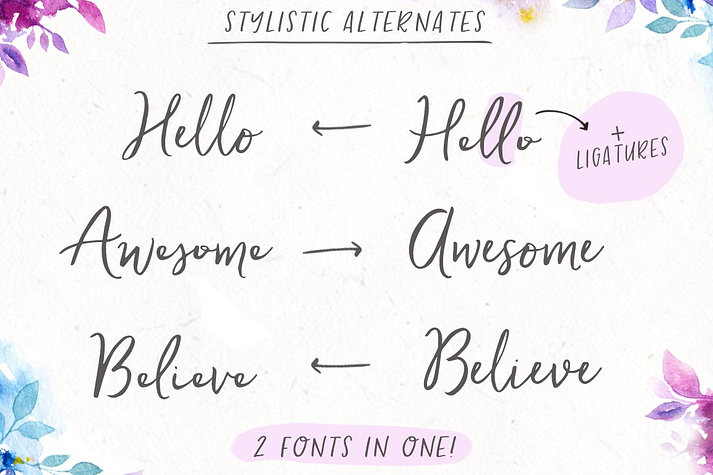 STYLISTIC ALTERNATES
Hello ← Hello
+
LIGATURES
Awesome → Awesome
Believe ← Believe
2 FONTS IN ONE!